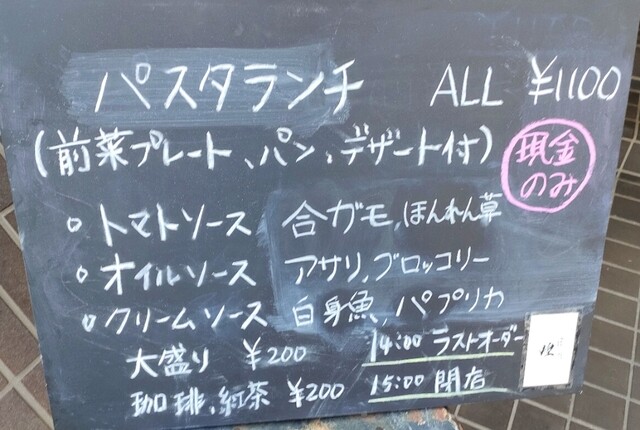 パスタランチ ALL ¥1100
(前菜プレート、パン、デザート付)
現金
のみ
○ トマトソース 合ガモ,ほんれん草
○ オイルソース アサリ,ブロッコリー
○ クリームソース 白身魚,パプリカ
大盛り ¥200
珈琲、紅茶 ¥200
14:00 ラストオーダー
15:00 閉店